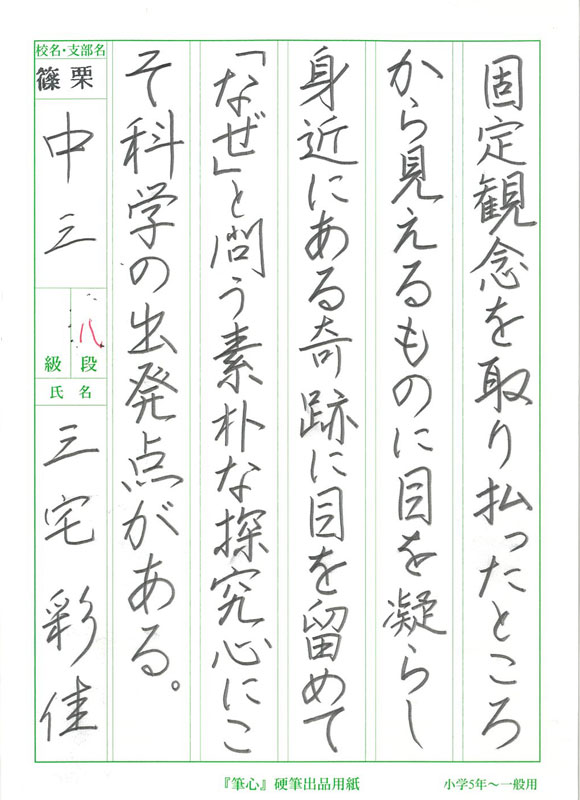 固定観念を取り払ったところ
から見えるものに目を凝らし
身近にある奇跡に目を留めて
「なぜ」と問う素朴な探究心にこ
そ科学の出発点がある。
校名・支部名
篠栗
中三
八
級 段
氏名
三宅彩佳
『筆心』硬筆出品用紙
小学5年～一般用